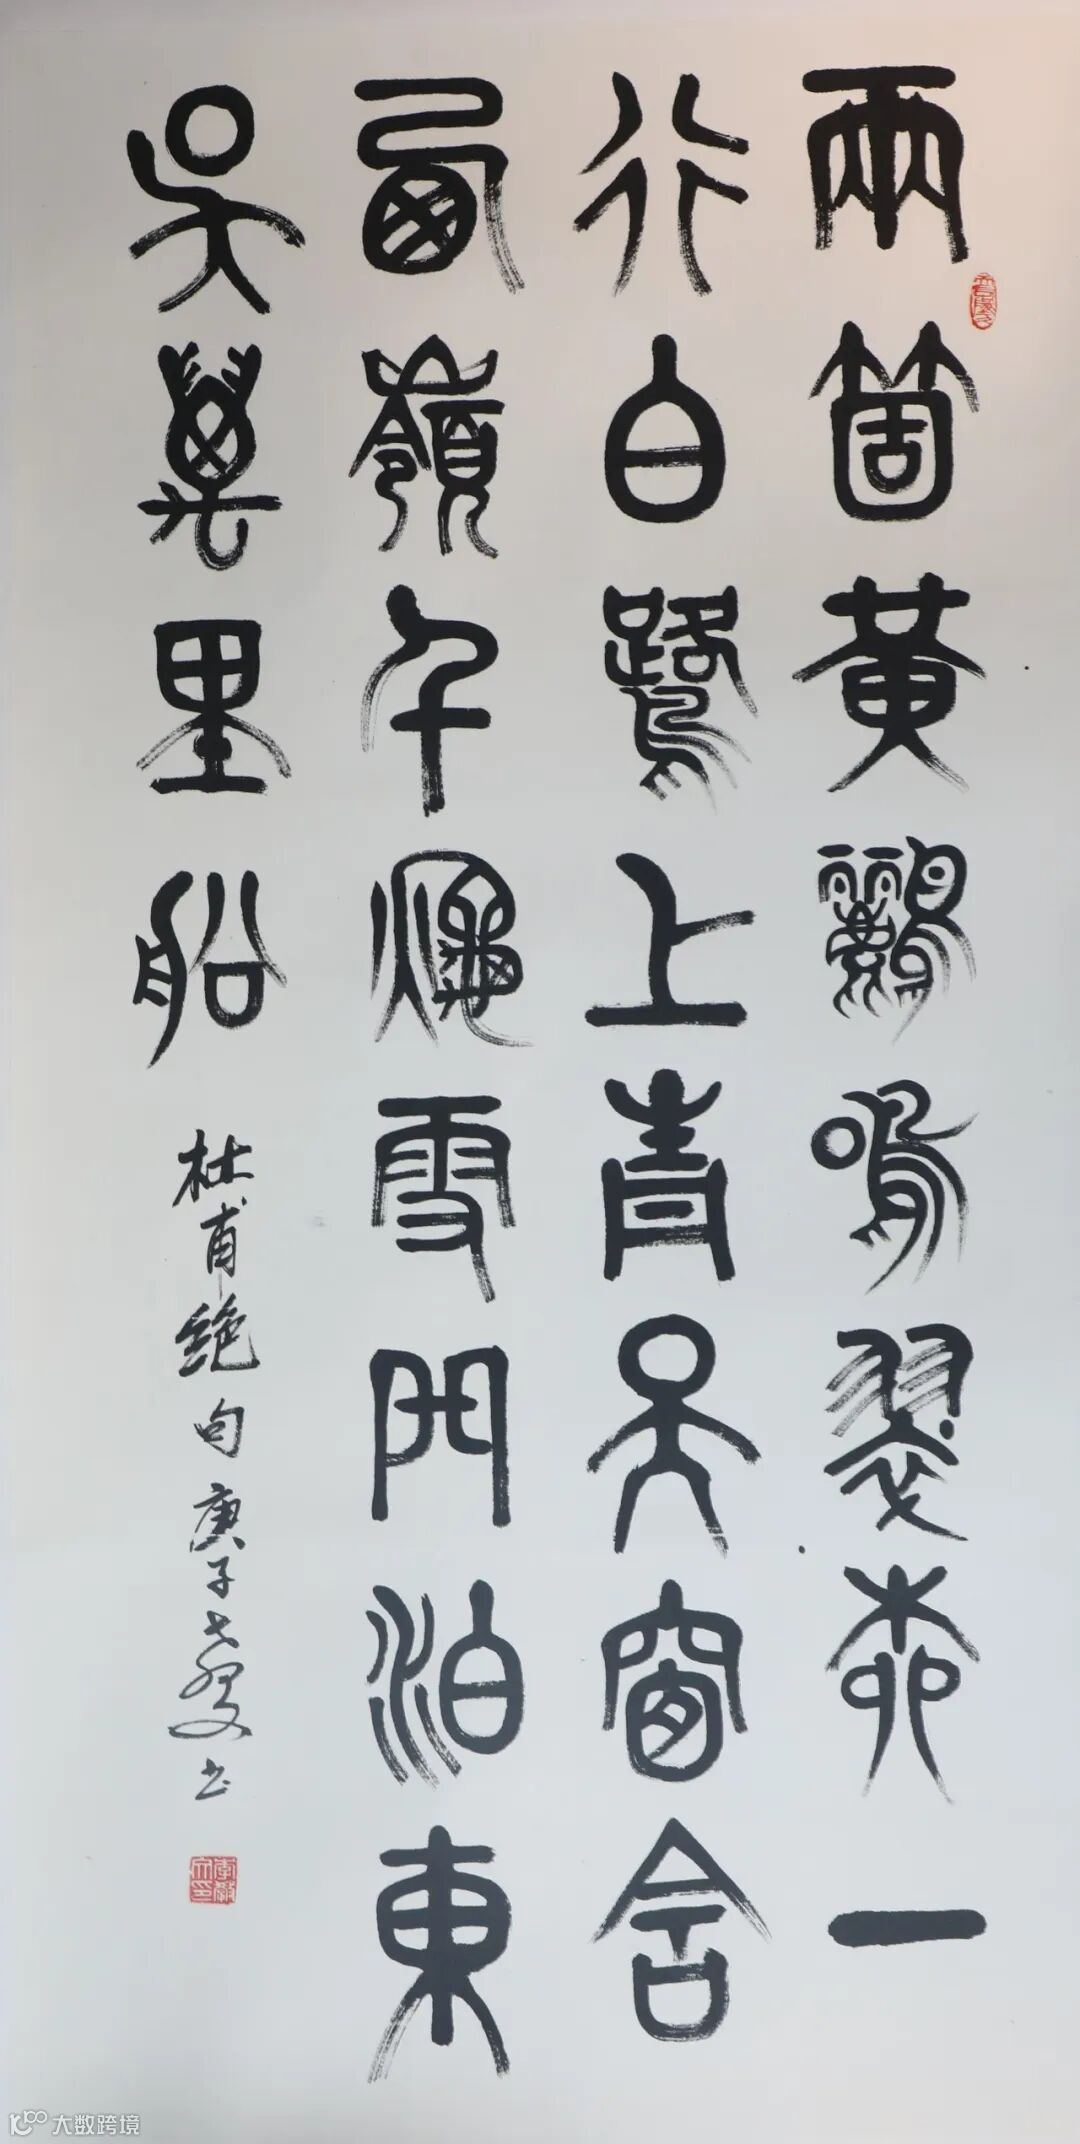 兩箇黃鸝鳴翠柳一
行白鷺上青天窗含
西嶺千秋雪門泊東
吳萬里船
杜甫絕句庚子叟书
大数跨境